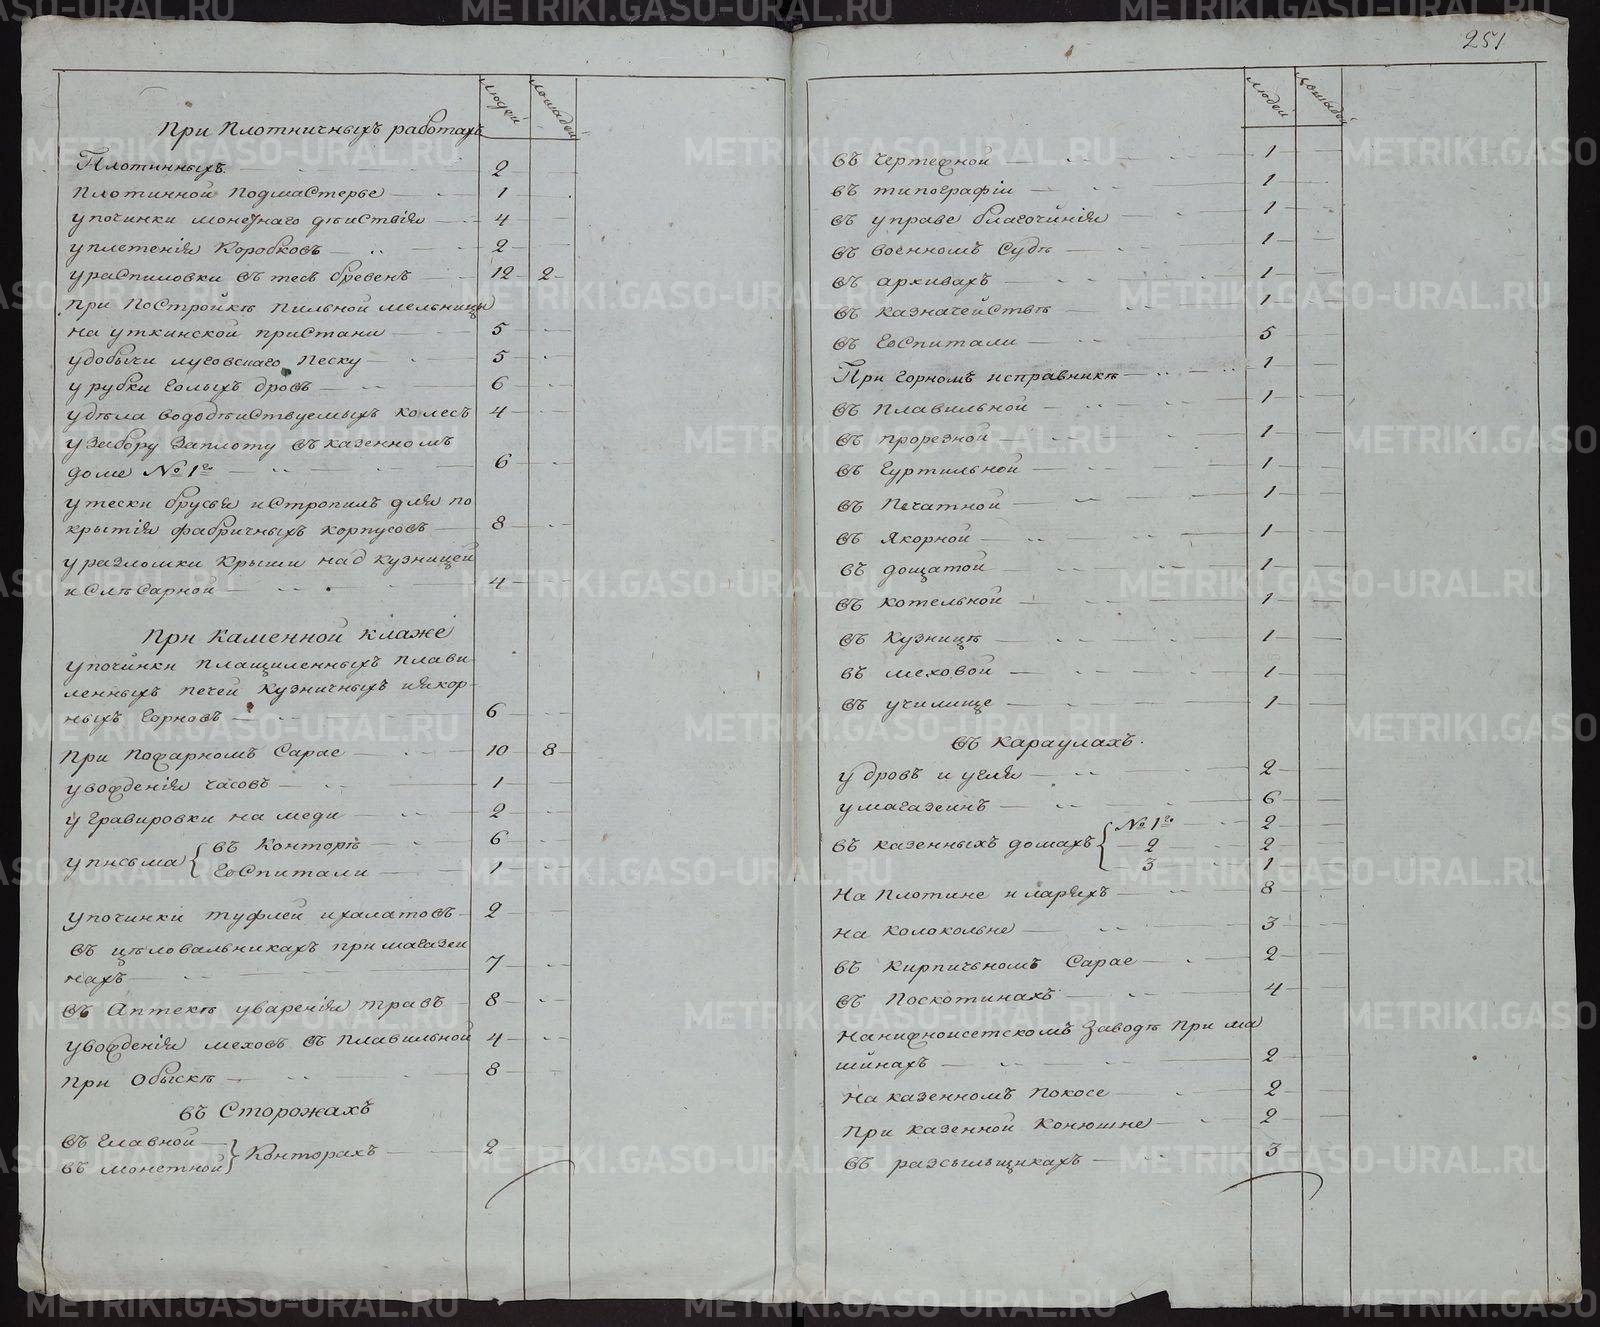 людей лошадей
При Плотничныхъ работахъ
Плотинныхъ 2
Плотинной Подмастерье 1
у починки монетнаго дѣиствія 4
у плетенія Коробковъ 2
у распиловки въ тесъ бревенъ 12 2
при Постройкѣ Пильной мельницы
на уткинской пристани 5
у добычи луговскаго Песку 5
у рубки голыхъ дровъ 6
у дѣла вододѣиствуемыхъ колесъ 4
у забору Заплоту въ казенномъ
доме № 1го 6
у тески брусья и стропилъ для по
крытія фабричныхъ корпусовъ 8
у разломки Крыши над кузницей
и слѣсарной 4
При Каменной кладке
у починки плащиленныхъ плави
ленныхъ печей Кузничныхъ и якор-
ныхъ Горновъ 6
при Пожарномъ Сарае 10 8
у вожденія часовъ 1
у гравировки на меди 2
у письма въ Конторѣ 6
Госпитали 1
у починки туфлей и халатовъ 2
въ цѣловальникахъ при магазеи
нахъ 7
въ Аптекѣ у варенія травъ 8
у вожденія меховъ въ плавильной 4
при Обыскѣ 8
въ Сторожахъ
въ Главной
въ монетной Конторахъ 2
251
людей лошадей
въ чертежной 1
въ типографіи 1
въ управе благочинія 1
въ военномъ Судѣ 1
въ архивахъ 1
въ казначействѣ 1
въ Госпитали 5
При горномъ исправникѣ 1
въ плавильной 1
въ прорезной 1
въ Гуртильной 1
въ Печатной 1
въ Якорной 1
въ дощатой 1
въ котельной 1
въ Кузницѣ 1
въ меховой 1
въ училище 1
въ Караулахъ.
у дровъ и угля 2
у магазеинъ 6
въ казенныхъ домахъ № 1го 2
2 2
3 1
На Плотине и ларяхъ 8
на колокольне 3
въ Кирпичномъ Сарае 2
въ Поскотинахъ 4
На нижноисетскомъ Заводѣ при ма
шинахъ 2
на казенномъ Покосе 2
при казенной Конюшне 2
въ разсыльщикахъ 3
METRIKI.GASO-URAL.RU